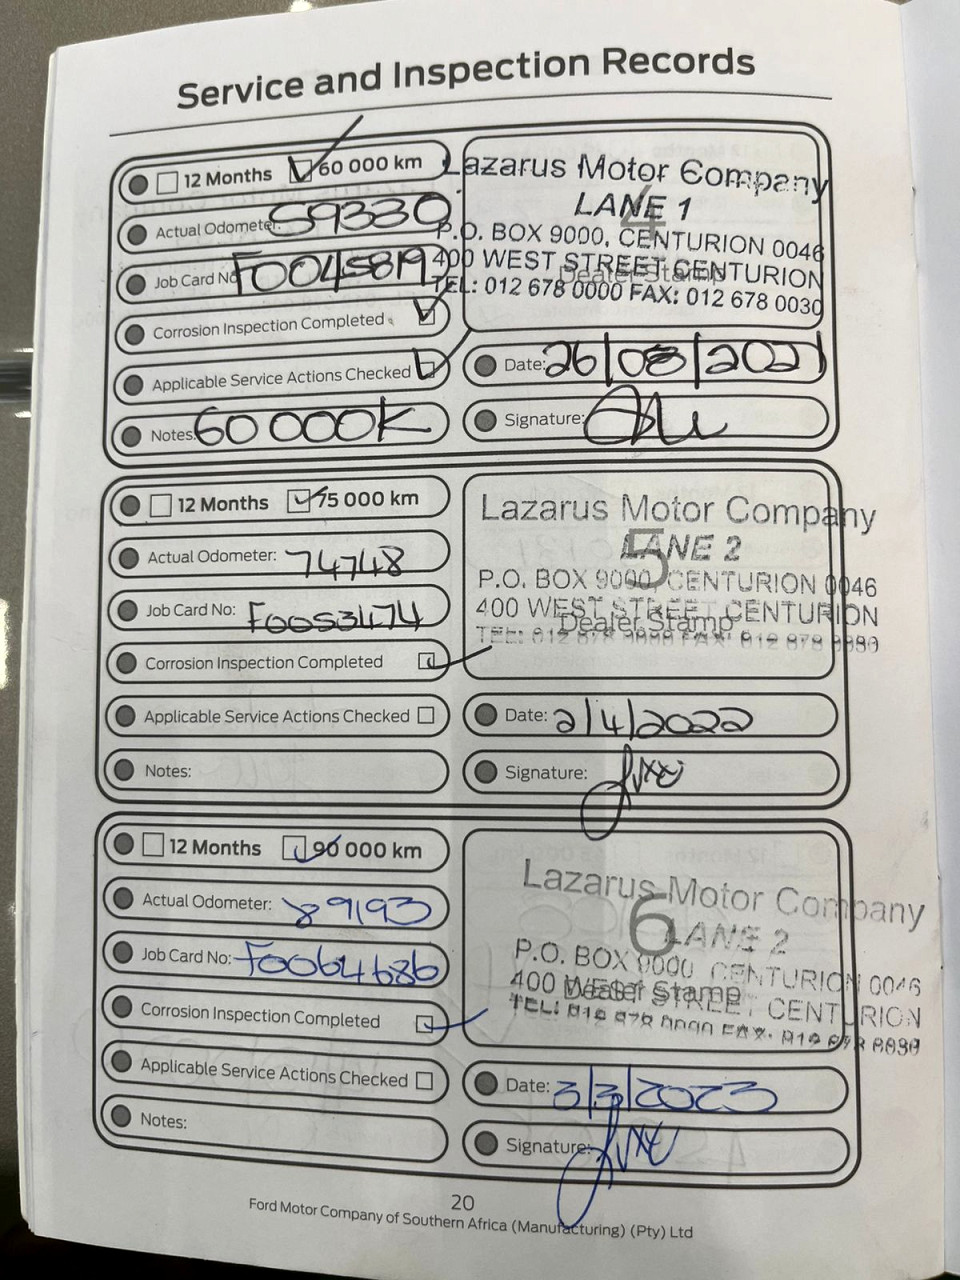 Service and Inspection Records
12 Months 60 000 km
Actual Odometer: 59330
Job Card No: F0045819
Corrosion Inspection Completed
Applicable Service Actions Checked
Notes: 60 000K
Lazarus Motor Company
LANE 1
4
P.O. BOX 9000, CENTURION 0046
400 WEST STREET CENTURION
Dealer Stamp
TEL: 012 678 0000 FAX: 012 678 0030
Date: 26/08/2021
Signature:
12 Months 75 000 km
Actual Odometer: 74748
Job Card No: F0053474
Corrosion Inspection Completed
Applicable Service Actions Checked
Notes:
Lazarus Motor Company
5
LANE 2
P.O. BOX 9000, CENTURION 0046
400 WEST STREET CENTURION
Dealer Stamp
Date: 2/4/2022
Signature:
12 Months 90 000 km
Actual Odometer: 89193
Job Card No: F0064686
Corrosion Inspection Completed
Applicable Service Actions Checked
Notes:
Lazarus Motor Company
6
LANE 2
P.O. BOX 9000 CENTURION 0046
400 WEST STREET CENTURION
Dealer Stamp
Date: 3/3/2023
Signature:
20
Ford Motor Company of Southern Africa (Manufacturing) (Pty) Ltd